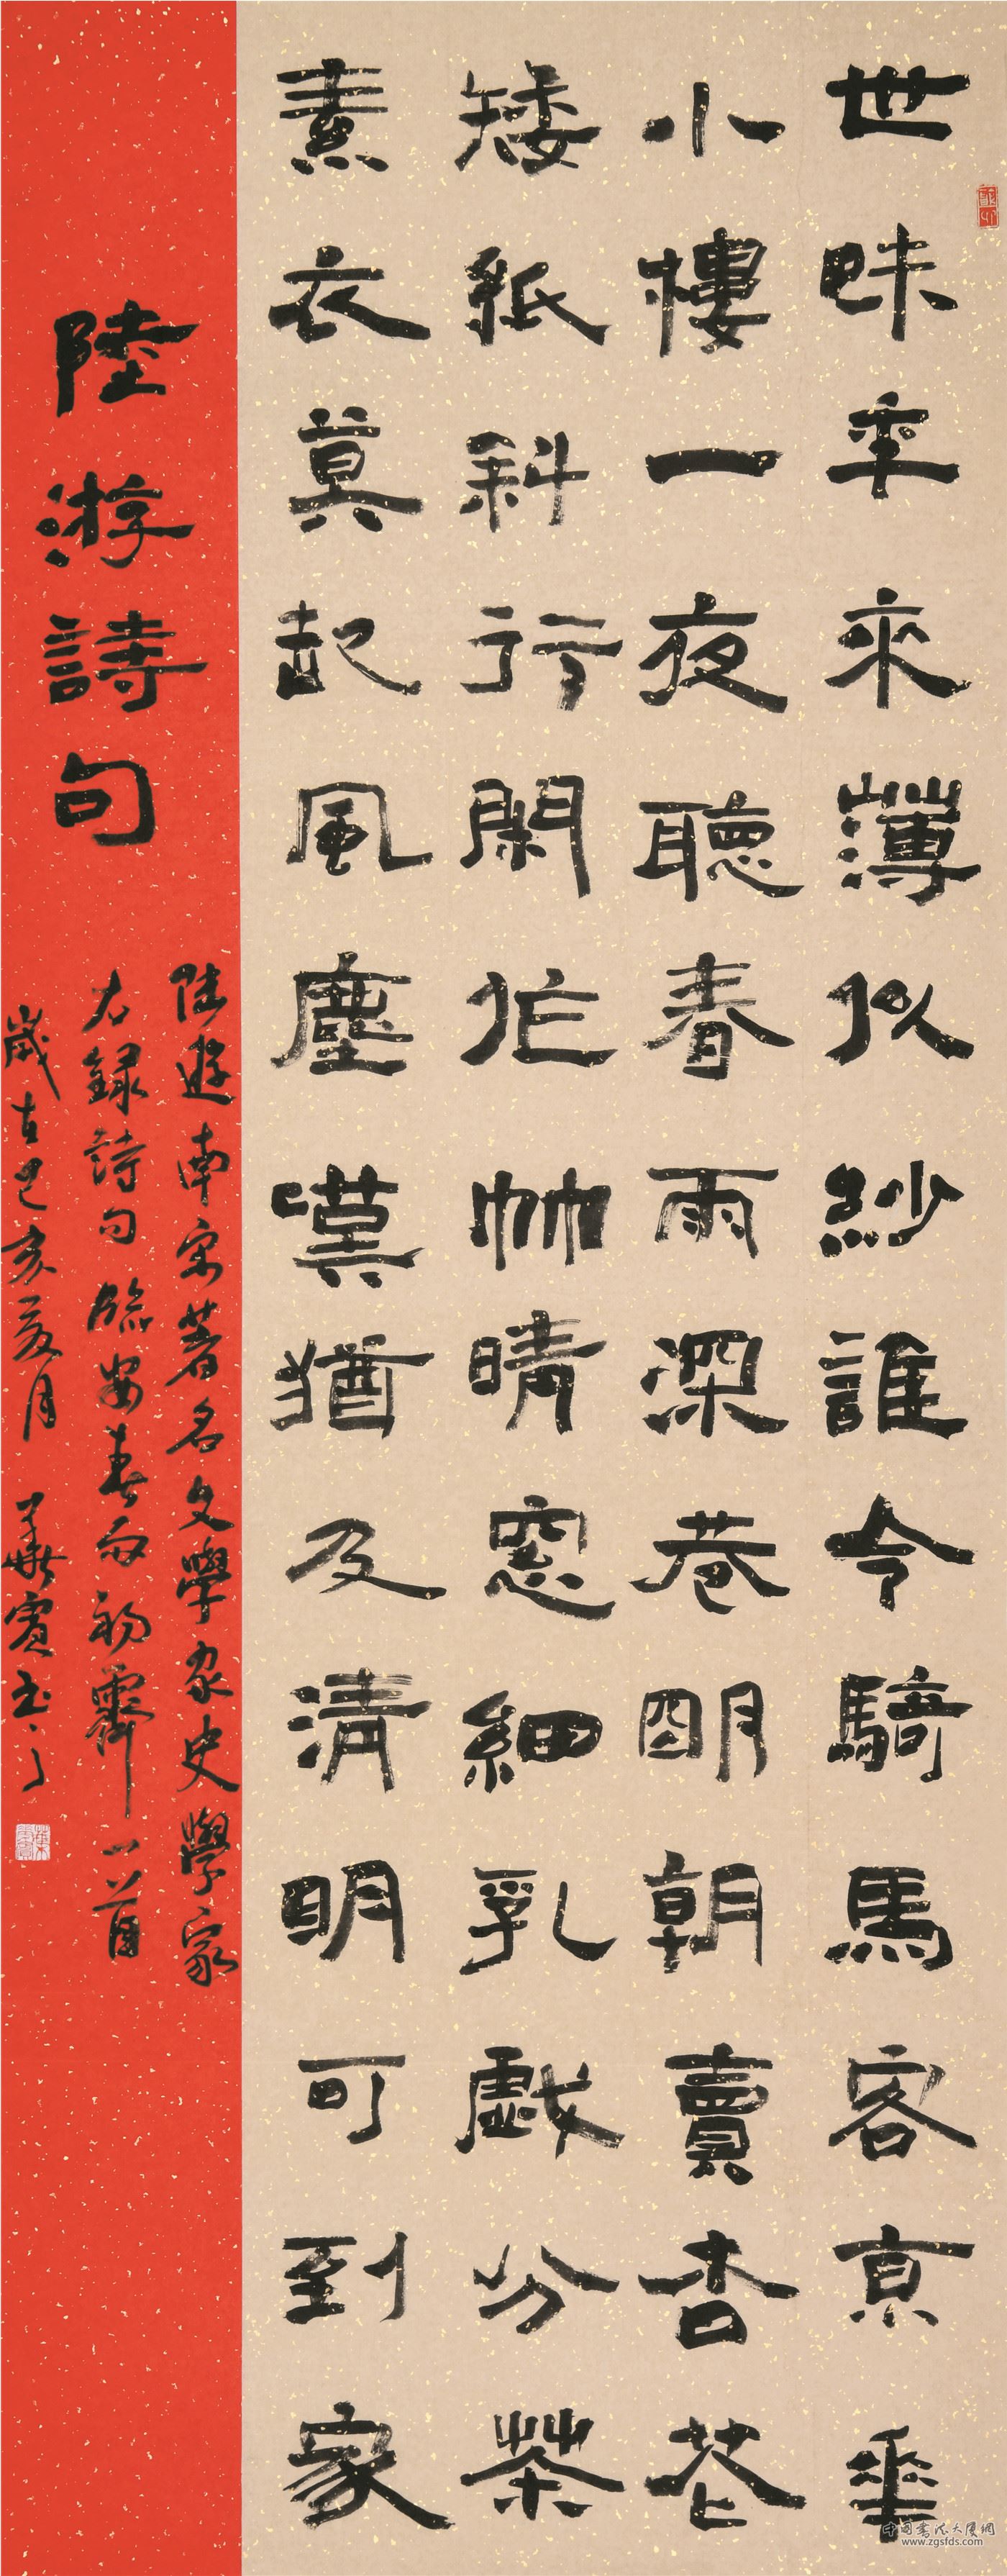 世味年來薄似紗誰令騎馬客京華
小樓一夜聽春雨深巷明朝賣杏花
矮紙斜行閑作艸晴窓細乳戲分茶
素衣莫起風塵嘆猶及清明可到家
陸游詩句
陸遊南宋著名文學家史學家
右録詩句臨安春雨初霽一首
歲在己亥夏月
中国书法大厦網
www.zgsfds.com